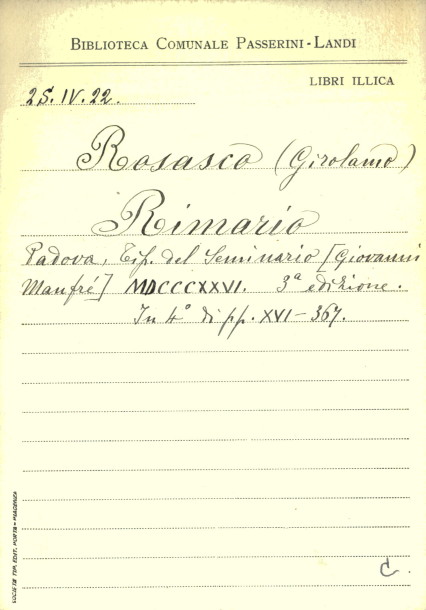 BIBLIOTECA COMUNALE PASSERINI-LANDI
LIBRI ILLICA
2S. IV. 22.
Rosasco (Girolamo)
Rimario
Padova, Tip. del Seminario [Giovanni
Manfré] MDCCCXXVI. 3ª edizione.
In 4° di pp. XVI-367.
SOCIETÀ TIP. EDIT. PORTA - PIACENZA
C.